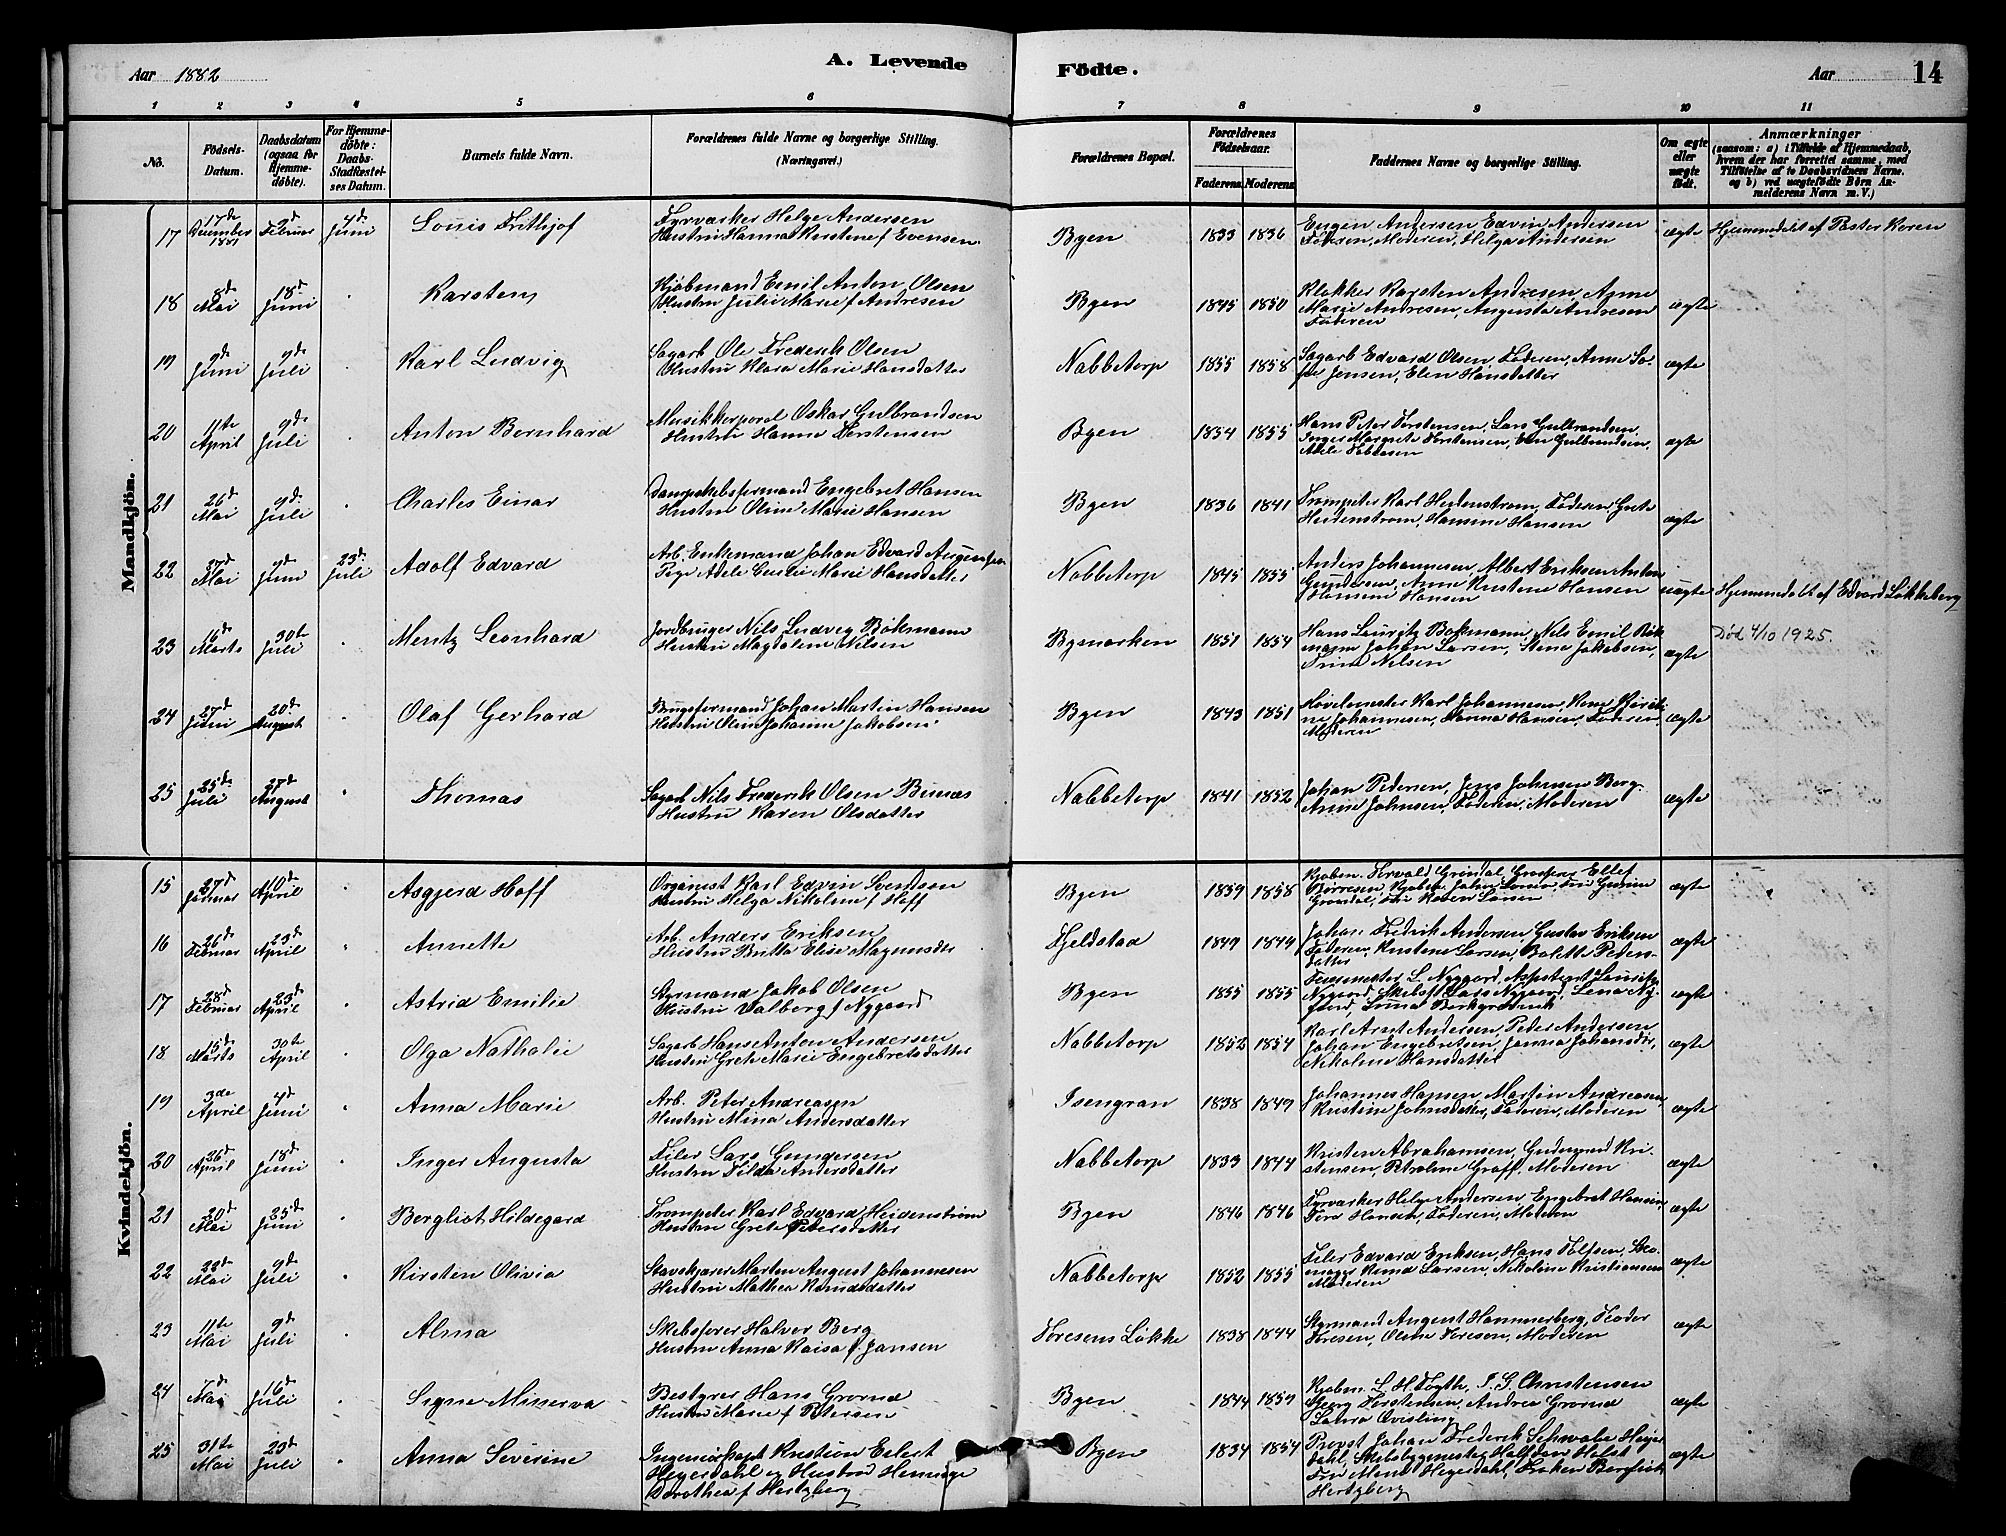 Aar 1882
A. Levende
Födte.
Aar
14
1 2 3 4 5 6 7 8 9 10 11
No.
Födsels-Datum.
Daabsdatum (ogsaa for Hjemme-döbte).
For Hjemme-döbte: Daabs-Stadfæstelses Datum.
Barnets fulde Navn.
Forældrenes fulde Navne og borgerlige Stilling. (Næringsvei.)
Forældrenes Bopæl.
Forældrenes Födselsaar.
Faderens Moderens
Faddernes Navne og borgerlige Stilling.
Om ægte eller uægte født.
Anmærkninger (saasom: a) i Tilfælde af Hjemmedaab, hvem der har forrettet samme, med Tilföielse af to Daabsvidners Navne, og b) ved uægtefödte Börn Anmelderens Navn m. V.)
Mandkjön.
17 17de December 1881 2d Februar 4de Juni Louis Frithjof
Fyrvarker Helge Andersen
Hustru Hanna Kirstine f Evensen
Byen 1833 1836
Eugen Andersen Edvin Andersen
Faderen, Moderen, Helga Andersen
ægte Hjemmedøbt af Pastor Koren
18 8d Mai 18d Juni Karsten
Kjøbmand Emil Anton Olsen
Hustru Julie Marie f Andresen
Byen 1845 1850
Klokker Karsten Andresen, Anne
Marie Andresen, Augusta Andresen
Faderen
ægte
19 9d Juni 9d Juli Karl Ludvig
Sagarb Ole Frederik Olsen
Hustru Klara Marie Hansdatter
Nabbetorp 1855 1858
Sagarb Edvard Olsen, Faderen, Anne So-
fie Jensen, Elen Hansdatter
ægte
20 11te April 9d Juli Anton Bernhard
Musikkorporal Oskar Gulbrandsen
Hustru Hanna Torstensen
Byen 1854 1855
Hans Peter Torstensen, Lars Gulbrandsen
Inger Margrete Torstensen, Gulbrandsen
Adele
ægte
21 26d Mai 9d Juli Charles Einar
Dampskibsformand Engebret Hansen
Hustru Oline Marie Hansen
Byen 1836 1841
Trompeter Karl Heidenstrøm, Faderen, Grete
Heidenstrøm, Hansine Hansen
ægte
22 27d Mai 9d Juni 23d Juli Adolf Edvard
Arb. Enkemand Johan Edvard
Pige Adele Marie Hansdatter
Nabbetorp 1845 1855
Anders Johannesen, Albert Eriksen, Anton
Gundersen, Anne Kirstine Hansen
Hansine Hansen
uægte Hjemmedøbt af Edvard Løkkeberg
23 16d Marts 30te Juli Mentz Leonhard
Jordbruger Nils Ludvig Bökmann
Hustru Magdalene Nilsen
Bymarken 1851 1854
Hans Lauritz Bökmann, Nils Emil Bök-
mann, Johan Larsen, Stene Jakobsen,
Trine Nilsen
ægte Död 4/10 1925.
24 27d Juni 20d August Olaf Gerhard
Brugsformand Johan Martin Hansen
Hustru Oline Johanne Jakobsen
Byen 1843 1851
Høvelmester Karl Johannesen,
Johannesen, Hanna Hansen, Faderen,
Moderen
ægte
25 25de Juli 27d August Thomas
Sagarb Nils Frederik Olsen
Hustru Karen Olsdatter
Nabbetorp 1841 1852
Johan Pedersen, Jens Johnsen Berg
Anne Johnsen, Faderen, Moderen
ægte
Kvindekjön.
15 27d Januar 10d April Asgjerd Hoff
Organist Karl Edvin Svendsen
Hustru Helga Nikoline f Hoff
Byen 1859 1858
Kjøbm. Torvald Grindal, Ellef
Børresen, Kjøbm. Johan Larsen, Fru
Grøndal, Fru Karen Larsen
ægte
16 26d Februar 23d April Annette
Arb. Anders Eriksen
Hustru Britta Elise Magnusdtr
Gjeldstad 1849 1849
Johan Fredrik Andersen, Gustav Eriksen
Faderen, Kirstine Larsen, Bolette Peders-
datter
ægte
17 28d Februar 23d April Astrid Emilie
Styrmand Jakob Olsen
Hustru Valborg f Nygaard
Byen 1855 1855
L. Nygaard, Assistent Lauritz
Nygaard, Skibsf Lars Nygaard, Lena Ny-
gaard,
ægte
18 15d Marts 30te April Olga Nathalie
Sagarb Hans Anton Andersen
Hustru Grete Marie Engebretsdatter
Nabbetorp 1852 1854
Karl Arnt Andersen, Peder Andersen
Johan Engebretsen, Janna Johansdtr,
Nikoline Hansdatter
ægte
19 3die April 4d Juni Anna Marie
Arb. Peter Andreasen
Hustru Mina Andersdatter
Isengran 1838 1849
Johannes Hansen, Martin Andreasen,
Kirstine Johnsdatter, Faderen, Moderen
ægte
20 26d April 18d Juni Inger Augusta
Filer Lars Gungersen
Hustru Tilda Andersdatter
Nabbetorp 1833 1844
Kristen Abrahamsen, Gudmund Kri-
stensen, Petroline Graff, Moderen
ægte
21 20d Mai 25d Juni Bergliot Hildegard
Trompeter Karl Edvard Heidenstrøm
Hustru Grete Petersdatter
Byen 1846 1846
Fyrvarker Helge Andersen, Engebret Hansen,
Hansen, Faderen, Moderen
ægte
22 22d Mai 9d Juli Kirsten Olivia
Stavskjærer Morten August Johannesen
Hustru Mathea Knudsdatter
Nabbetorp 1852 1855
Filer Edvard Eriksen, Hans Tolfsen, Sko-
mager Knud Larsen, Nikoline Kristiansen
Moderen
ægte
23 11te Mai 9d Juli Alma
Skibsfører Halvor Berg
Hustru Anna Kaisa f. Jansen
Toresens Løkke 1838 1844
Styrmand August Hammerberg, Teodor
Toresen, Oline Toresen, Moderen
ægte
24 7d Mai 16d Juli Signe Minerva
Bestyrer Hans Grorud
Hustru Marie f Petersen
Byen 1844 1854
Kjøbm. L. H. Fogth, T. S. Christensen
Georg Torstensen, Andrea Grorud
Laura Qvisling
ægte
25 31te Mai 23d Juli Anna Severine
Ingeniørkapt Kristian Eilert
Heyerdahl og Hustru Henninge
Dorothea f Hertzberg
Byen 1834 1854
Provst Johan Frederik Schwabe Heyer-
dahl, Skibsbygmester Halfdan Holst
Fru Mene Heyerdahl, Frøken Bergliot
Hertzberg
ægte